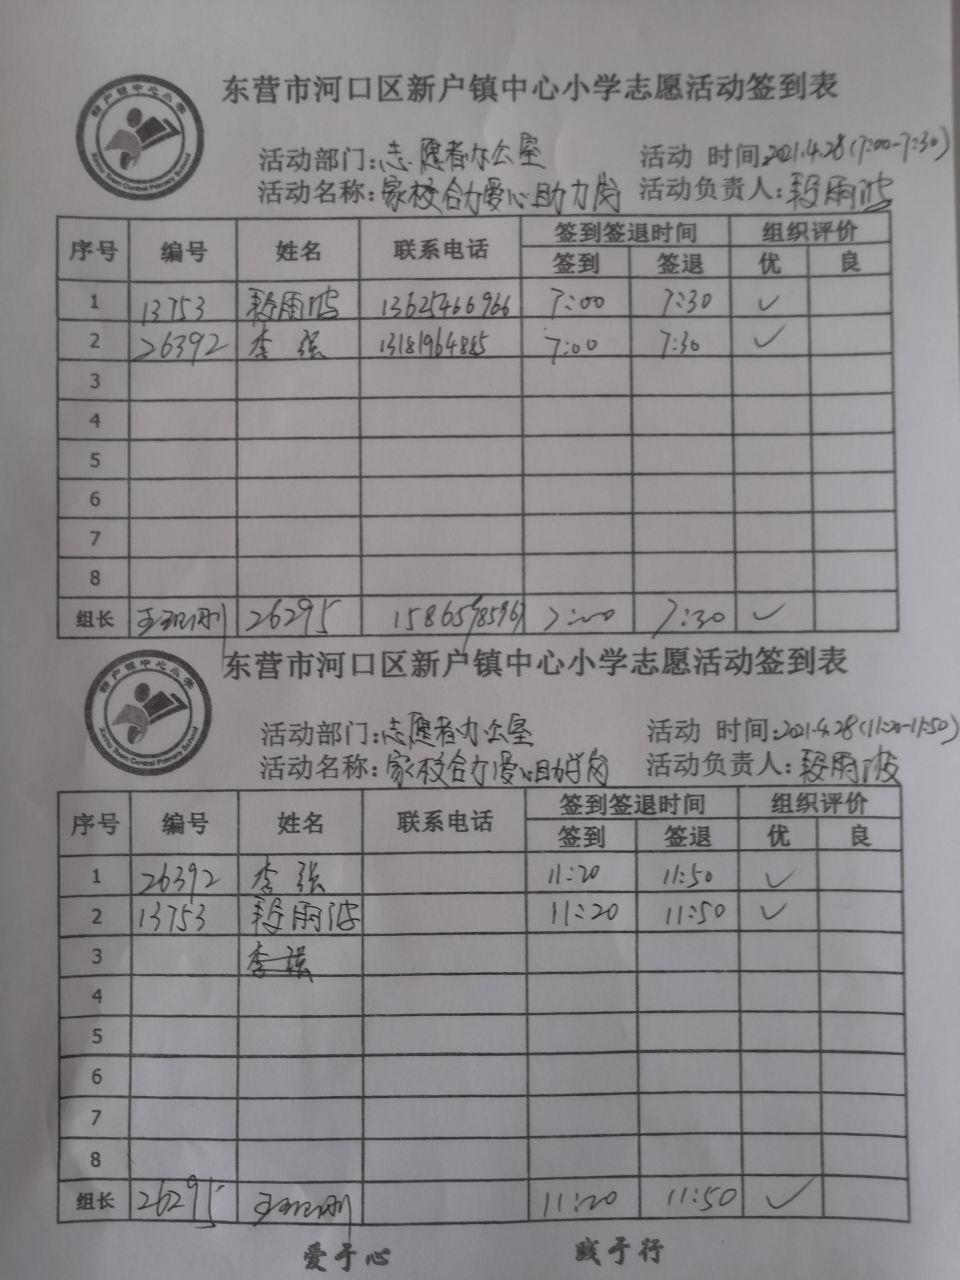 新户镇中心小学
Xinhu Town Central Primary School
东营市河口区新户镇中心小学志愿活动签到表
活动部门:志愿者办公室 活动 时间:2021.4.28(7:00-7:30)
活动名称:家校合力爱心助力岗 活动负责人:段雨
序号 编号 姓名 联系电话 签到签退时间 组织评价
签到 签退 优 良
1 13753 段雨 13625466966 7:00 7:30 ✓
2 26392 李强 13181964885 7:00 7:30 ✓
3
4
5
6
7
8
组长 王 刚 26295 7:00 7:30 ✓
新户镇中心小学
Xinhu Town Central Primary School
东营市河口区新户镇中心小学志愿活动签到表
活动部门:志愿者办公室 活动 时间:2021.4.28(11:20-11:50)
活动名称:家校合力爱心助学岗 活动负责人:段雨
序号 编号 姓名 联系电话 签到签退时间 组织评价
签到 签退 优 良
1 26392 李强 11:20 11:50 ✓
2 13753 段雨 11:20 11:50 ✓
3 李强
4
5
6
7
8
组长 26295 王 刚 11:20 11:50 ✓
爱于心 践于行